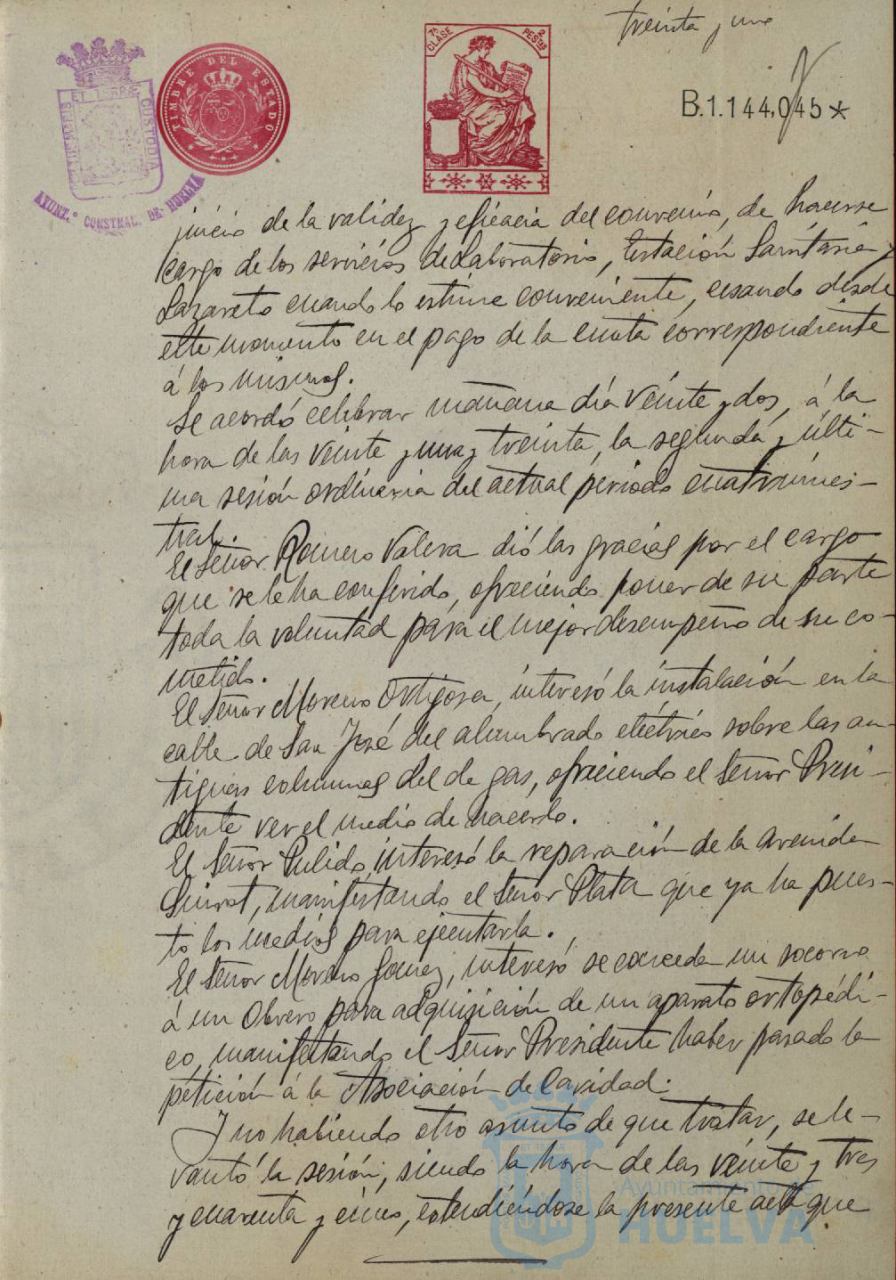 treinta y uno
7ª CLASE 2 PESETAS
TIMBRE DEL ESTADO
PORTUS MARIS ET TERRÆ CUSTODIA
AYUNT.º CONSTNAL. DE HUELVA
B.1.144,045*
juicio de la validez y eficacia del convenio, de hacerse
cargo de los servicios de Laboratorio, Estación Sanitaria y
Lazareto cuando lo estime conveniente, cesando desde
este momento en el pago de la cuota correspondiente
á los mismos.
Se acordó celebrar mañana día veinte y dos, á la
hora de las veinte y una y treinta, la segunda y últi-
ma sesión ordinaria del actual período cuatrimes-
tral.
El Señor Romero Valera dió las gracias por el cargo
que se le ha conferido, ofreciendo poner de su parte
toda la voluntad para el mejor desempeño de su co-
metido.
El Señor Moreno Ortigosa, interesó la instalación en la
calle de San José del alumbrado eléctrico sobre las an-
tiguas columnas del de gas, ofreciendo el Señor Presi-
dente ver el medio de hacerlo.
El Señor Pulido, interesó la reparación de la Avenida
manifestando el Señor Plata que ya ha pues-
to los medios para ejecutarla.
El Señor Moreno Gomez, interesó se conceda un socorro
á un Obrero para adquisición de un aparato ortopédi-
co, manifestando el Señor Presidente haber pasado la
petición á la Asociación de Caridad.
Y no habiendo otro asunto de que tratar, se le-
vantó la sesión, siendo la hora de las veinte y tres
y cuarenta y cinco, extendiéndose la presente acta que
Ayuntamiento de
HUELVA